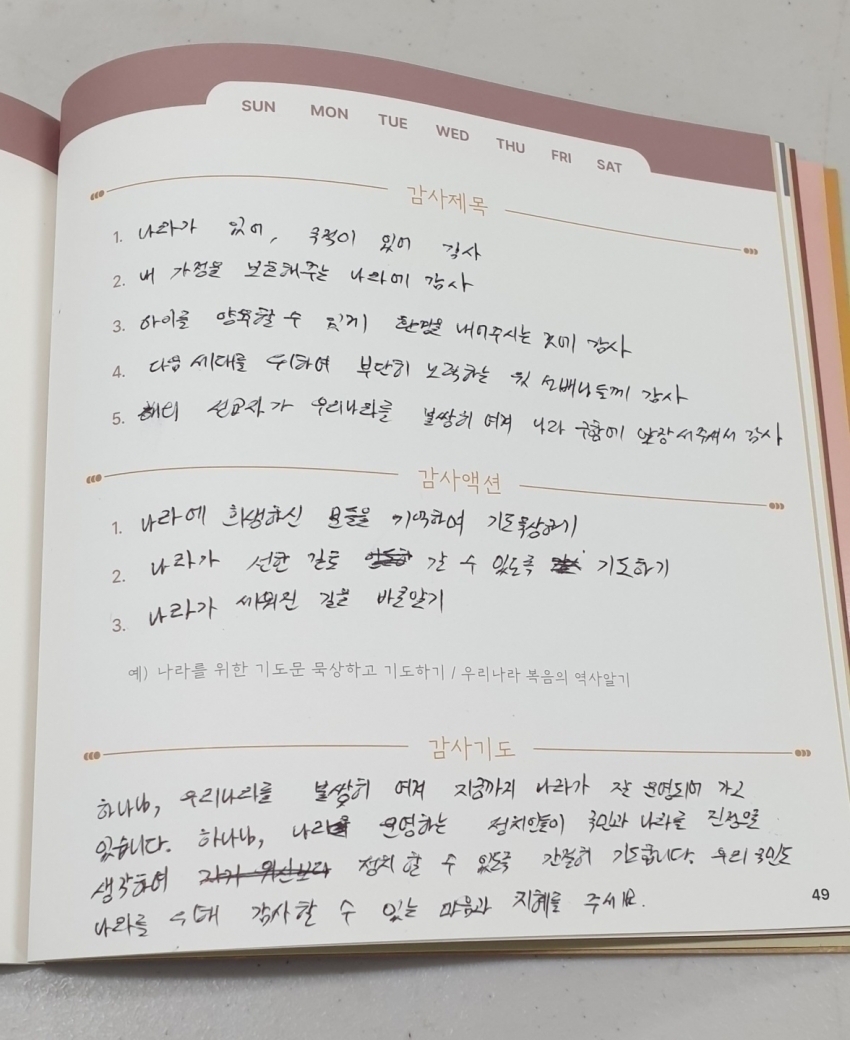 SUN MON TUE WED THU FRI SAT
감사제목
1. 나라가 있어, 국적이 있어 감사
2. 내 가정을 보호해주는 나라에 감사
3. 아이를 양육할 수 있게 환경을 내어주시는 것에 감사
4. 다음 세대를 위하여 부단히 노력하는 윗 선배님들께 감사
5. 선교사가 우리나라를 불쌍히 여겨 나라 구함에 앞장서주셔서 감사
감사액션
1. 나라에 희생하신 분들을 기억하여 기도묵상하기
2. 나라가 선한 길로 갈 수 있도록 기도하기
3. 나라가 세워진 길을 바로알기
예) 나라를 위한 기도문 묵상하고 기도하기 / 우리나라 복음의 역사알기
감사기도
하나님, 우리나라를 불쌍히 여겨 지금까지 나라가 잘 운영되어 가고
있습니다. 하나님, 나라를 운영하는 정치인들이 국민과 나라를 진정으로
생각하여 정치 할 수 있도록 간절히 기도합니다. 우리 국민도
나라를 위해 감사할 수 있는 마음과 지혜를 주세요.
49